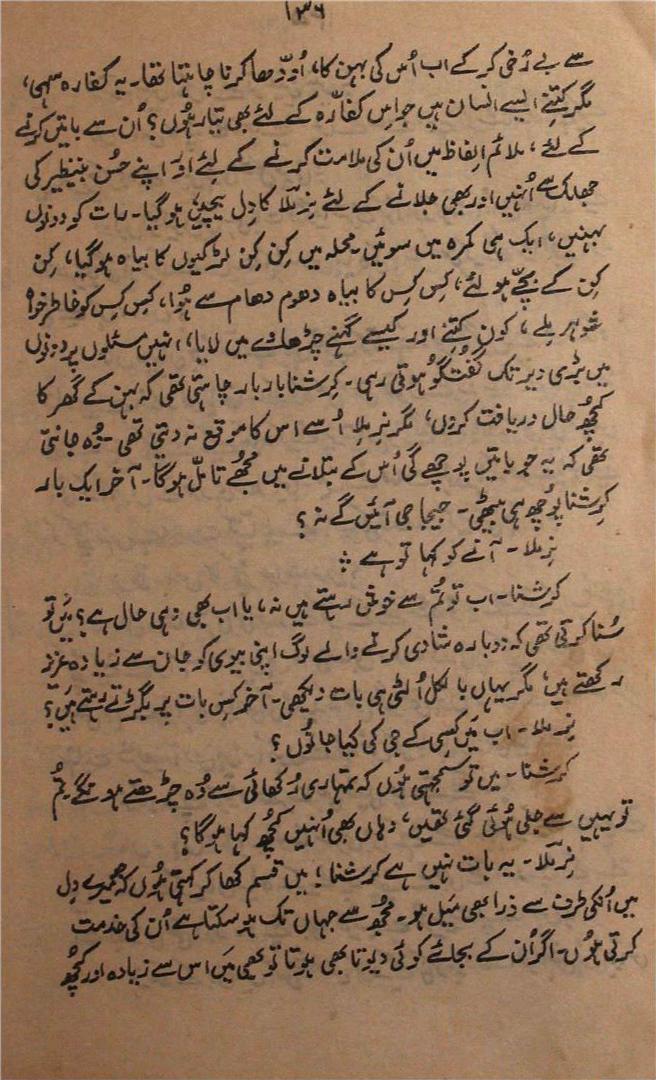 ۱۳۶
سے بے رُخی کر کے اب اُس کی بہن کا، اُودّھار کرنا چاہتا تھا۔ یہ کفارہ سہی،
مگر کتنے ایسے انسان ہیں جو اس کفّارہ کے لئے بھی تیار ہُوں؟ اُن سے باتیں کرنے
کے لئے، ملائم الفاظ میں اُن کی ملامت کرنے کے لئے اور اپنے حُسن بینظیر کی
جھلک سے اُنہیں اور بھی جلانے کے لئے نِرملا کا دِل بیچین ہو گیا۔ رات کو دونوں
بہنیں، ایک ہی کمرہ میں سوئیں۔ محلہ میں کِن کِن لڑکیوں کا بیاہ ہو گیا، کِن
کِن کے بچّے ہو لئے، کِس کِس کا بیاہ دھوم دھام سے ہُوا، کِس کِس کو خاطر خواہ
شوہر ملے، کون کتنے اور کیسے گہنے چڑھاوے میں لایا، انہیں مسئلوں پر دونوں
میں بڑی دیر تک گفتگو ہوتی رہی۔ کرشنا بار بار چاہتی تھی کہ بہن کے گھر کا
کچُھ حال دریافت کروں، مگر نِرملا اُسے اس کا موقع نہ دیتی تھی۔ وُہ جانتی
تھی کہ یہ جو باتیں پوچھے گی اُس کے بتلانے میں مجُھے تامّل ہو گا۔ آخر ایک بار
کِرشنا پوُچھ ہی بیٹھی۔ جیجا جی آئیں گے نہ؟
نِرملا۔ آنے کو کہا تو ہے ؞
کرشنا۔ اب تو تُم سے خوش رہتے ہیں نہ، یا اب بھی وہی حال ہے؟ مَیں تو
سُنا کرتی تھی کہ دوبارہ شادی کرنے والے لوگ اپنی بیوی کو جان سے زیادہ عزیز
رکھتے ہیں، مگر یہاں بالکل اُلٹی ہی بات دیکھی۔ آخر کِس بات پر بگڑتے رہتے ہیں؟
نِرملا۔ اب مَیں کِسی کے جی کی کیا جانُوں؟
کرشنا۔ میں تو سمجھتی ہُوں کہ تمہاری رُکھائی سے وُہ چِڑھتے ہونگے۔ تُم
تو یہیں سے جلی ہُوئی گئی تھیں، وہاں بھی اُنہیں کچُھ کہا ہوگا؟
نِرملا۔ یہ بات نہیں ہے کرشنا! میں قسم کھا کر کہتی ہُوں کہ جو میرے دِل
میں اُنکی طرف سے ذرا بھی مَیل ہو۔ مجُھ سے جہاں تک ہو سکتا ہے اُن کی خدمت
کرتی ہُوں۔ اگر اُن کے بجائے کوئی دیوتا بھی ہوتا تو بھی مَیں اس سے زیادہ اور کچُھ